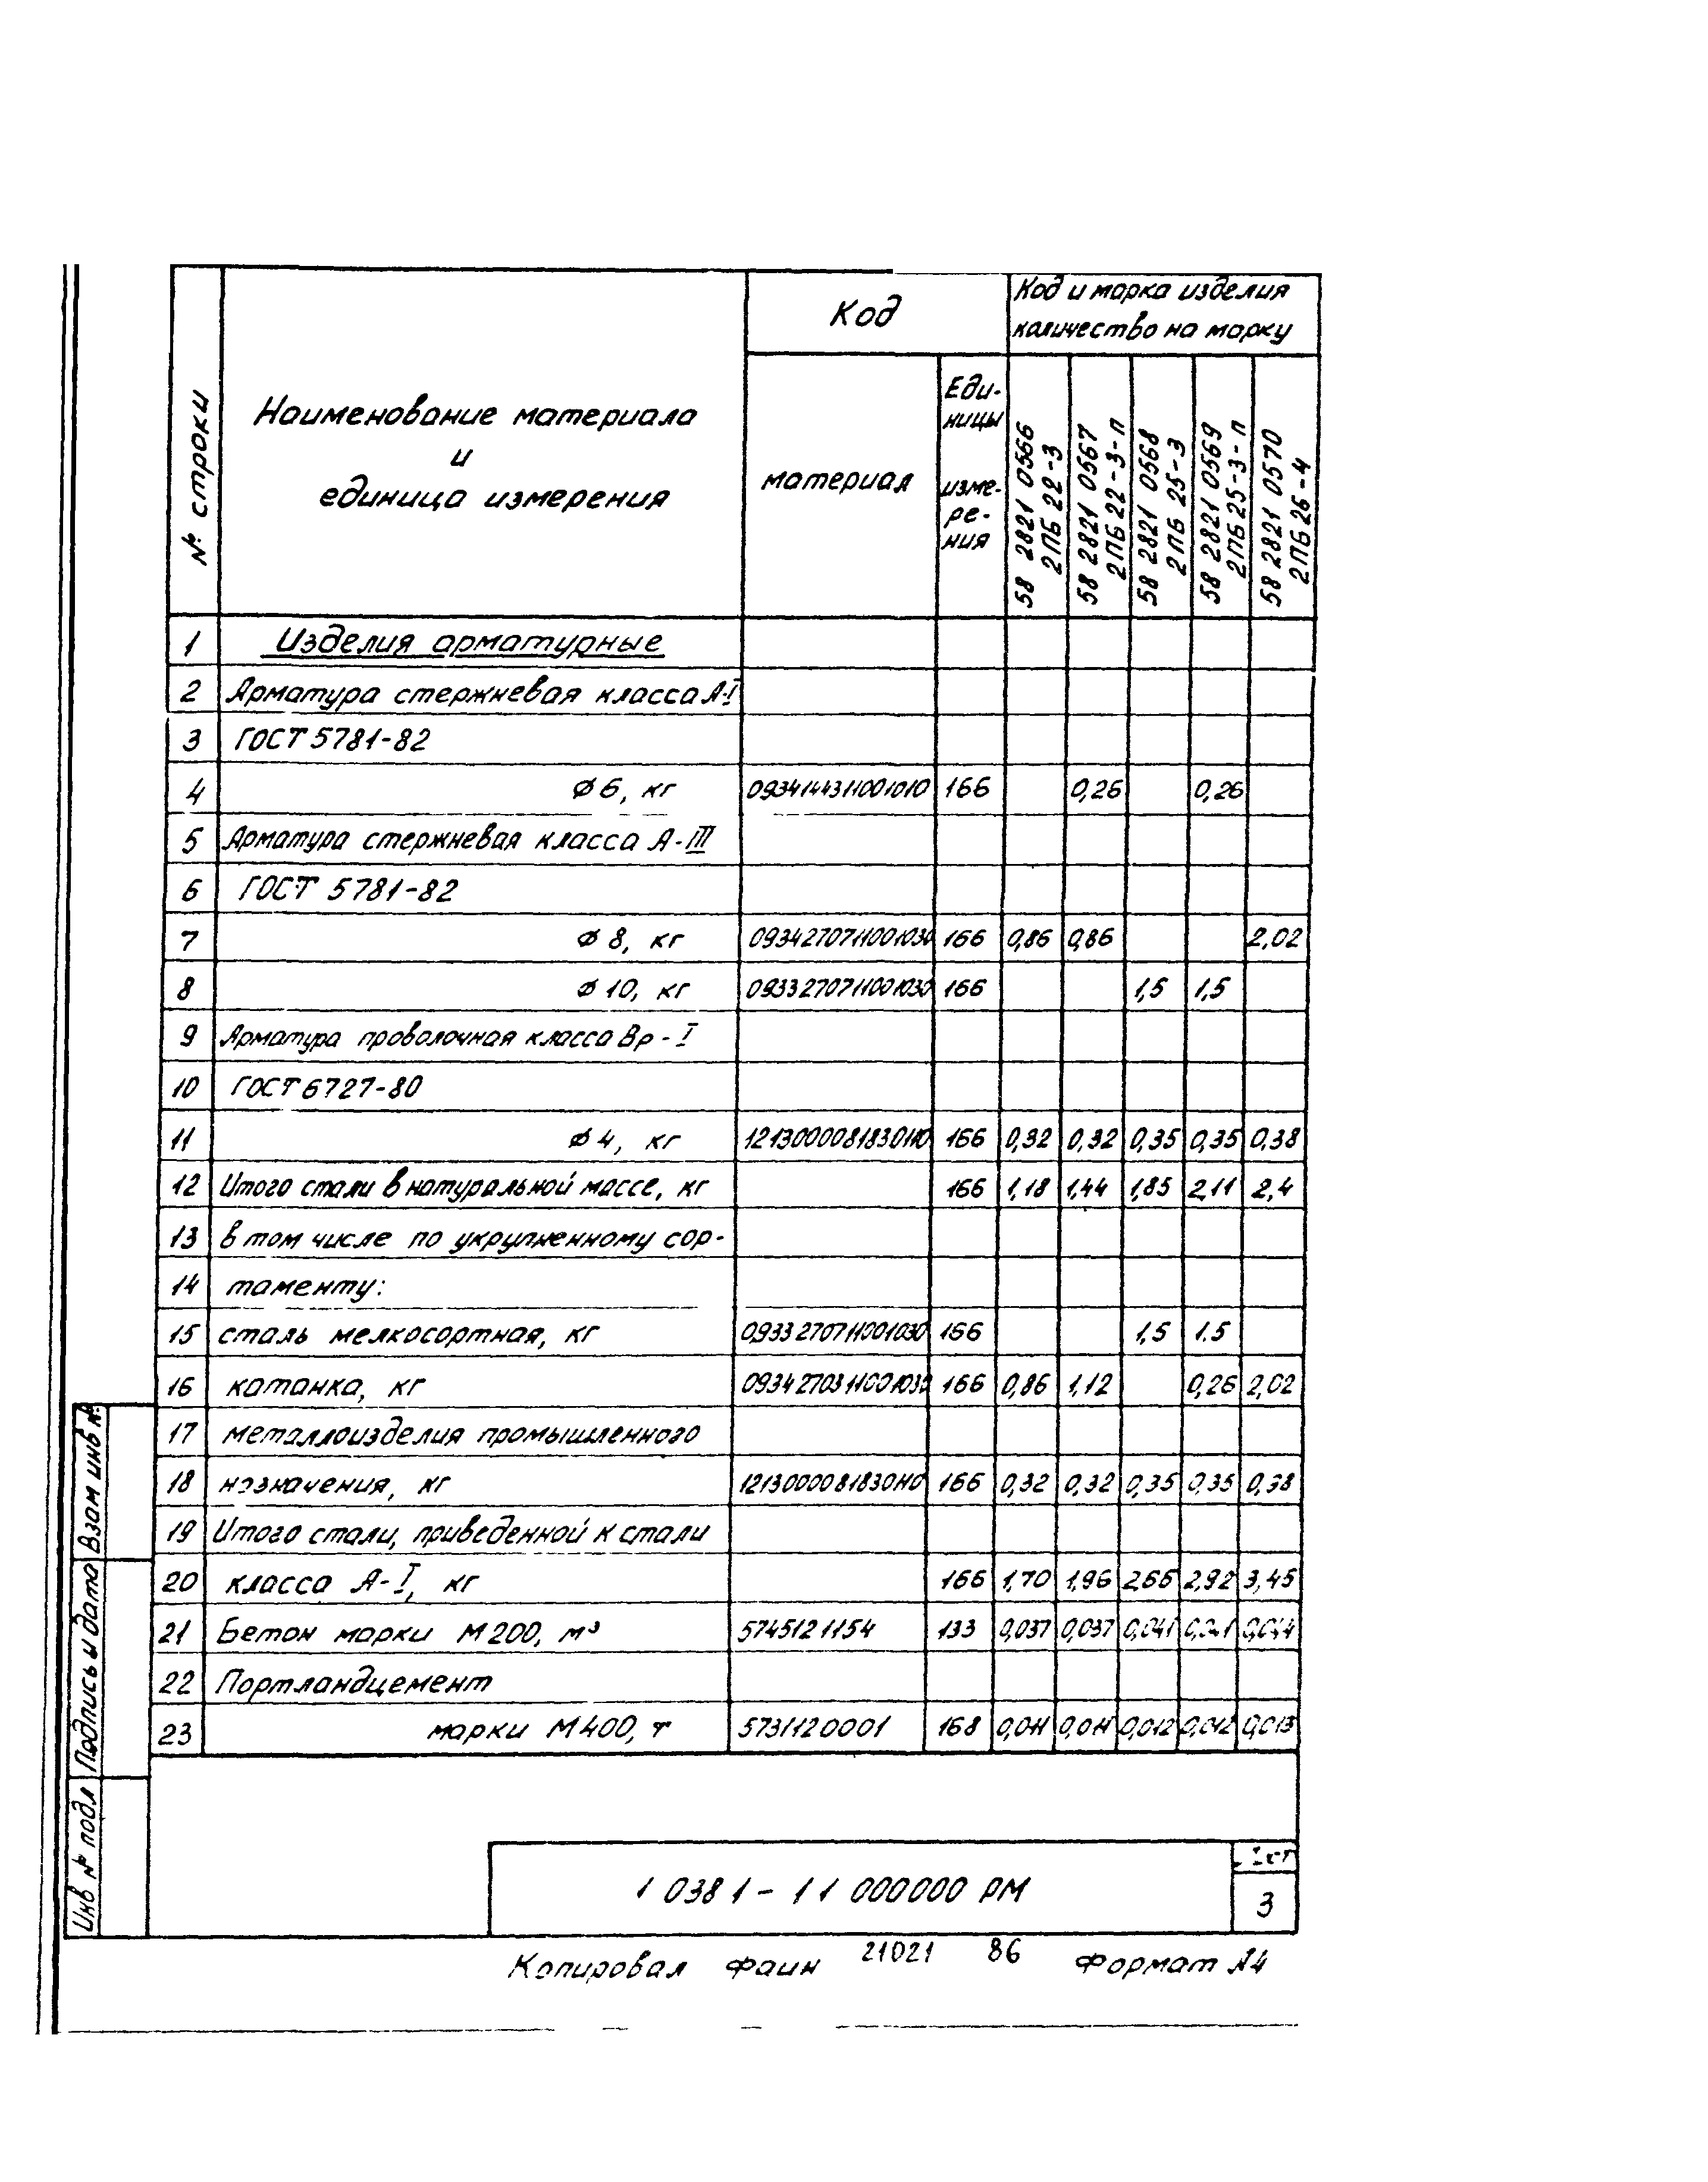 № строки
Наименование материала
и
единица измерения
Код
материал
Еди-
ницы
изме-
ре-
ния
Код и марка изделия
количество на марку
58 2821 0566
2ПБ 22-3
58 2821 0567
2ПБ 22-3-п
58 2821 0568
2ПБ 25-3
58 2821 0569
2ПБ 25-3-п
58 2821 0570
2ПБ 26-4
1 Изделия арматурные
2 Арматура стержневая класса А-I
3 ГОСТ 5781-82
4 Ф 6, кг 0934144311001010 166 0,26 0,26
5 Арматура стержневая класса А-III
6 ГОСТ 5781-82
7 Ф 8, кг 0934270711001030 166 0,86 0,86 2,02
8 Ф 10, кг 0933270711001030 166 1,5 1,5
9 Арматура проволочная класса Вр-I
10 ГОСТ 6727-80
11 Ф 4, кг 1213000081830110 166 0,32 0,32 0,35 0,35 0,38
12 Итого стали в натуральной массе, кг 166 1,18 1,44 1,85 2,11 2,4
13 в том числе по укрупненному сор-
14 таменту:
15 сталь мелкосортная, кг 0933270711001030 166 1,5 1.5
16 катанка, кг 0934270311001030 166 0,86 1,12 0,26 2,02
17 металлоизделия промышленного
18 назначения, кг 1213000081830110 166 0,32 0,32 0,35 0,35 0,38
19 Итого стали, приведенной к стали
20 класса А-I, кг 166 1,70 1,96 2,66 2,92 3,45
21 Бетон марки М200, м³ 5745121154 133 0,037 0,037 0,041 0,041 0,044
22 Портландцемент
23 марки М400, т 5731120001 168 0,011 0,011 0,012 0,012 0,013
Инв № подл
Подпись и дата
Взам инв №
1 038 1 - 1 1 000000 РМ
3
Копировал Фаин 21021 86 Формат А4